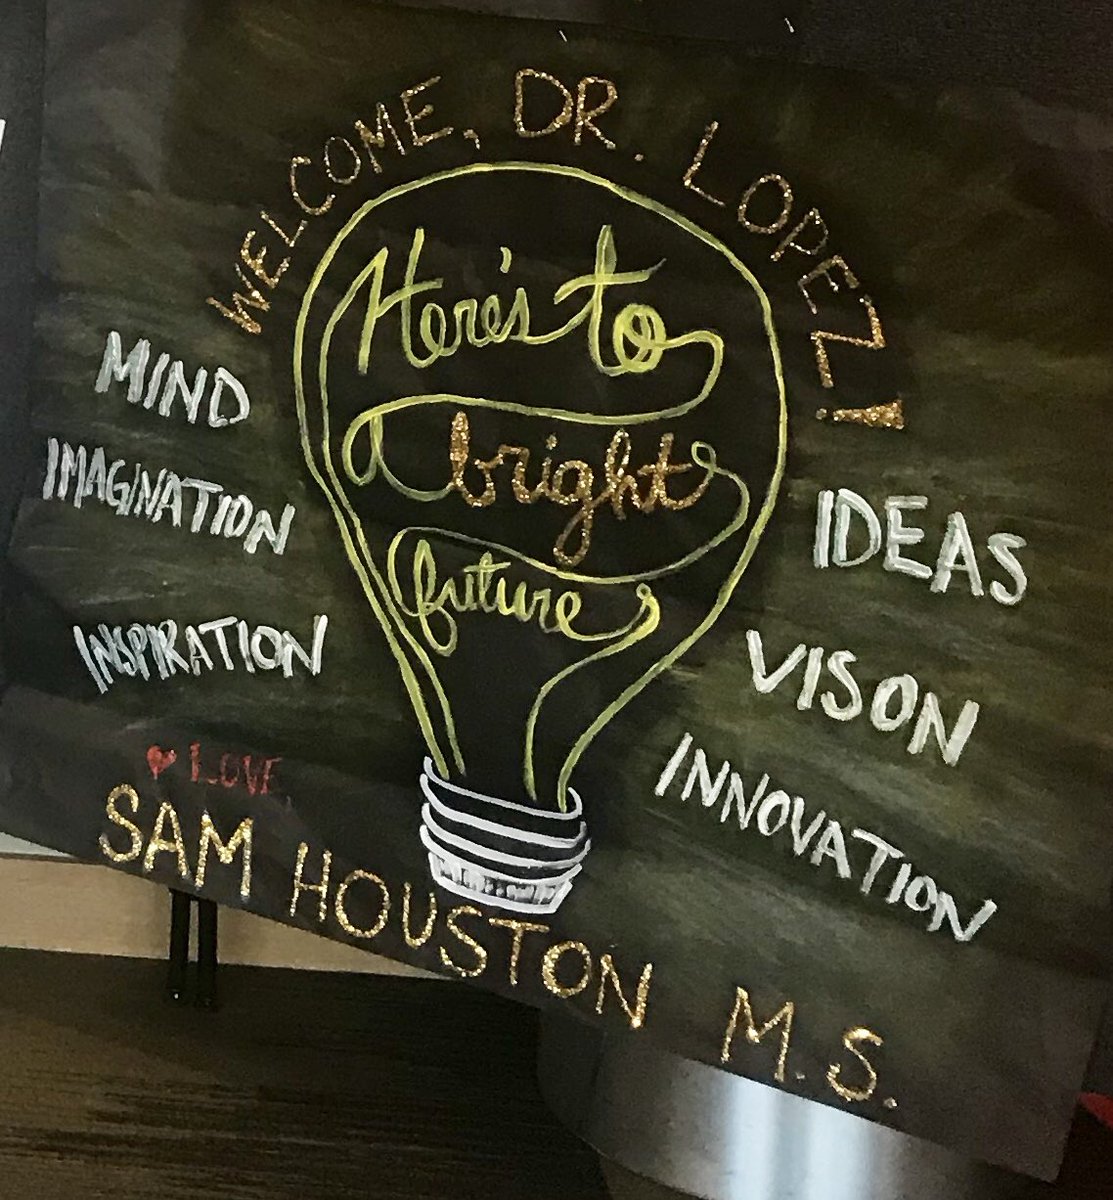 WELCOME, DR. LOPEZ!
Here's to
a bright
future
MIND
IMAGINATION
INSPIRATION
IDEAS
VISON
INNOVATION
♥ LOVE,
SAM HOUSTON M.S.